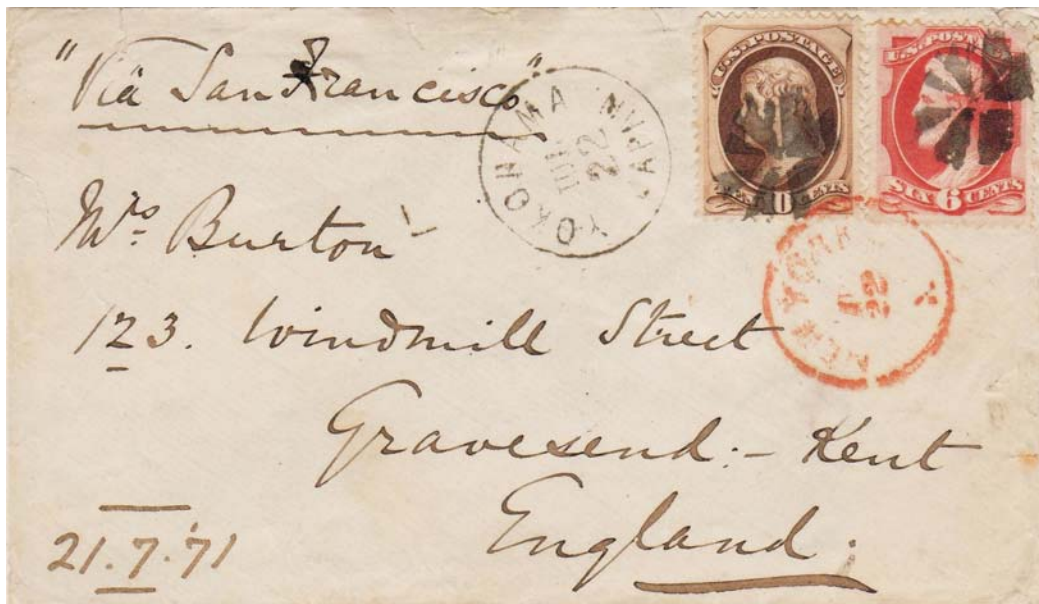 "Via San Francisco"
YOKOHAMA JAPAN
JUL
22
U.S. POSTAGE
TEN 10 CENTS
U.S. POSTAGE
SIX 6 CENTS
Mrs Burton
NEW YORK
22
123. Windmill Street
Gravesend:- Kent
England.
21.7.'71